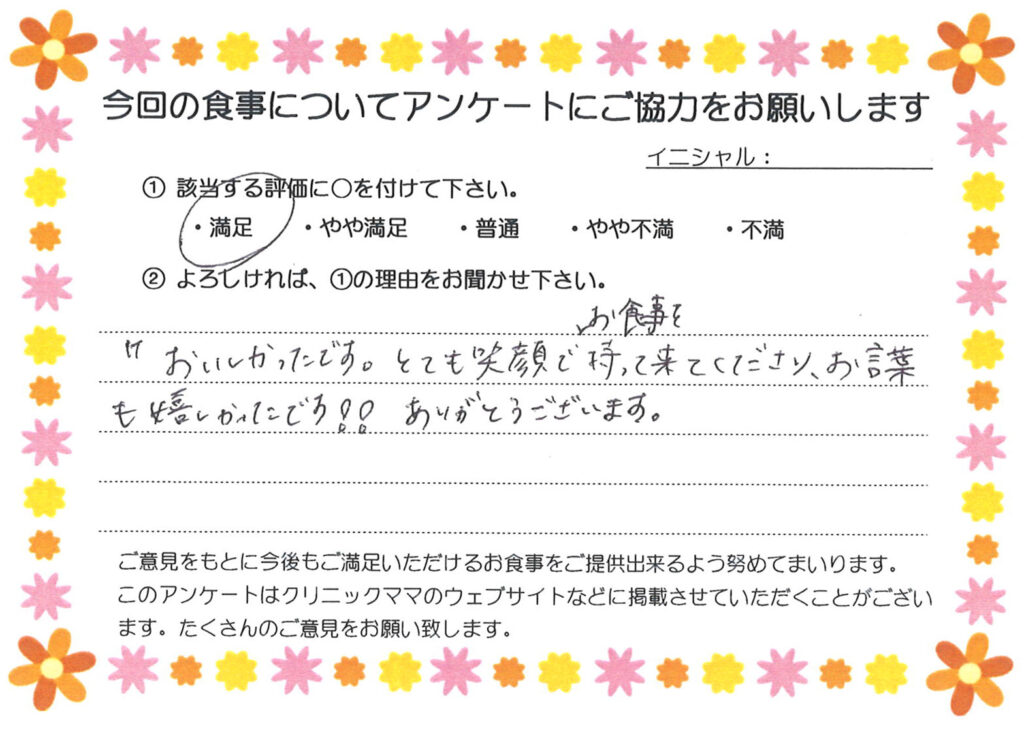 今回の食事についてアンケートにご協力をお願いします
イニシャル：
① 該当する評価に○を付けて下さい。
・満足 ・やや満足 ・普通 ・やや不満 ・不満
② よろしければ、①の理由をお聞かせ下さい。
お食事を
おいしかったです。とても笑顔で持って来てくださり、お言葉
も嬉しかったです!! ありがとうございます。
ご意見をもとに今後もご満足いただけるお食事をご提供出来るよう努めてまいります。
このアンケートはクリニックママのウェブサイトなどに掲載させていただくことがござい
ます。たくさんのご意見をお願い致します。